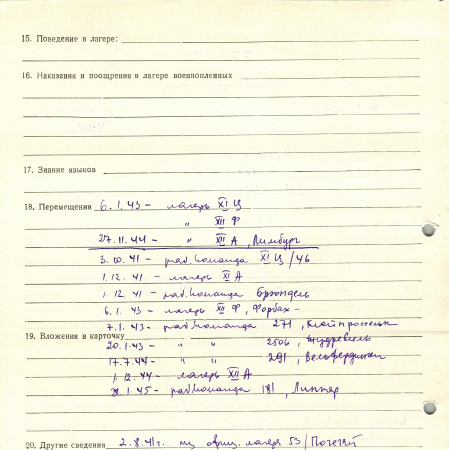 15. Поведение в лагере:
16. Наказания и поощрения в лагере военнопленных
17. Знание языков
18. Перемещения 6.1.43 – лагерь XI Ц
" XII Ф
27.11.44 – " XII А, Лимбург
3.10.41 – раб.команда XI Ц/46
1.12.41 – лагерь XI А
1.12.41 – раб.команда
6.1.43 – лагерь XII Ф, Форбах –
7.1.43 – раб.команда 271,
19. Вложения в карточку
20.1.43 – " " 2506,
17.7.44 – " " 291,
1.12.44 – лагерь XII А
1.45 – раб.команда 181,
20. Другие сведения 2.8.41г. из офиц. лагеря 53/